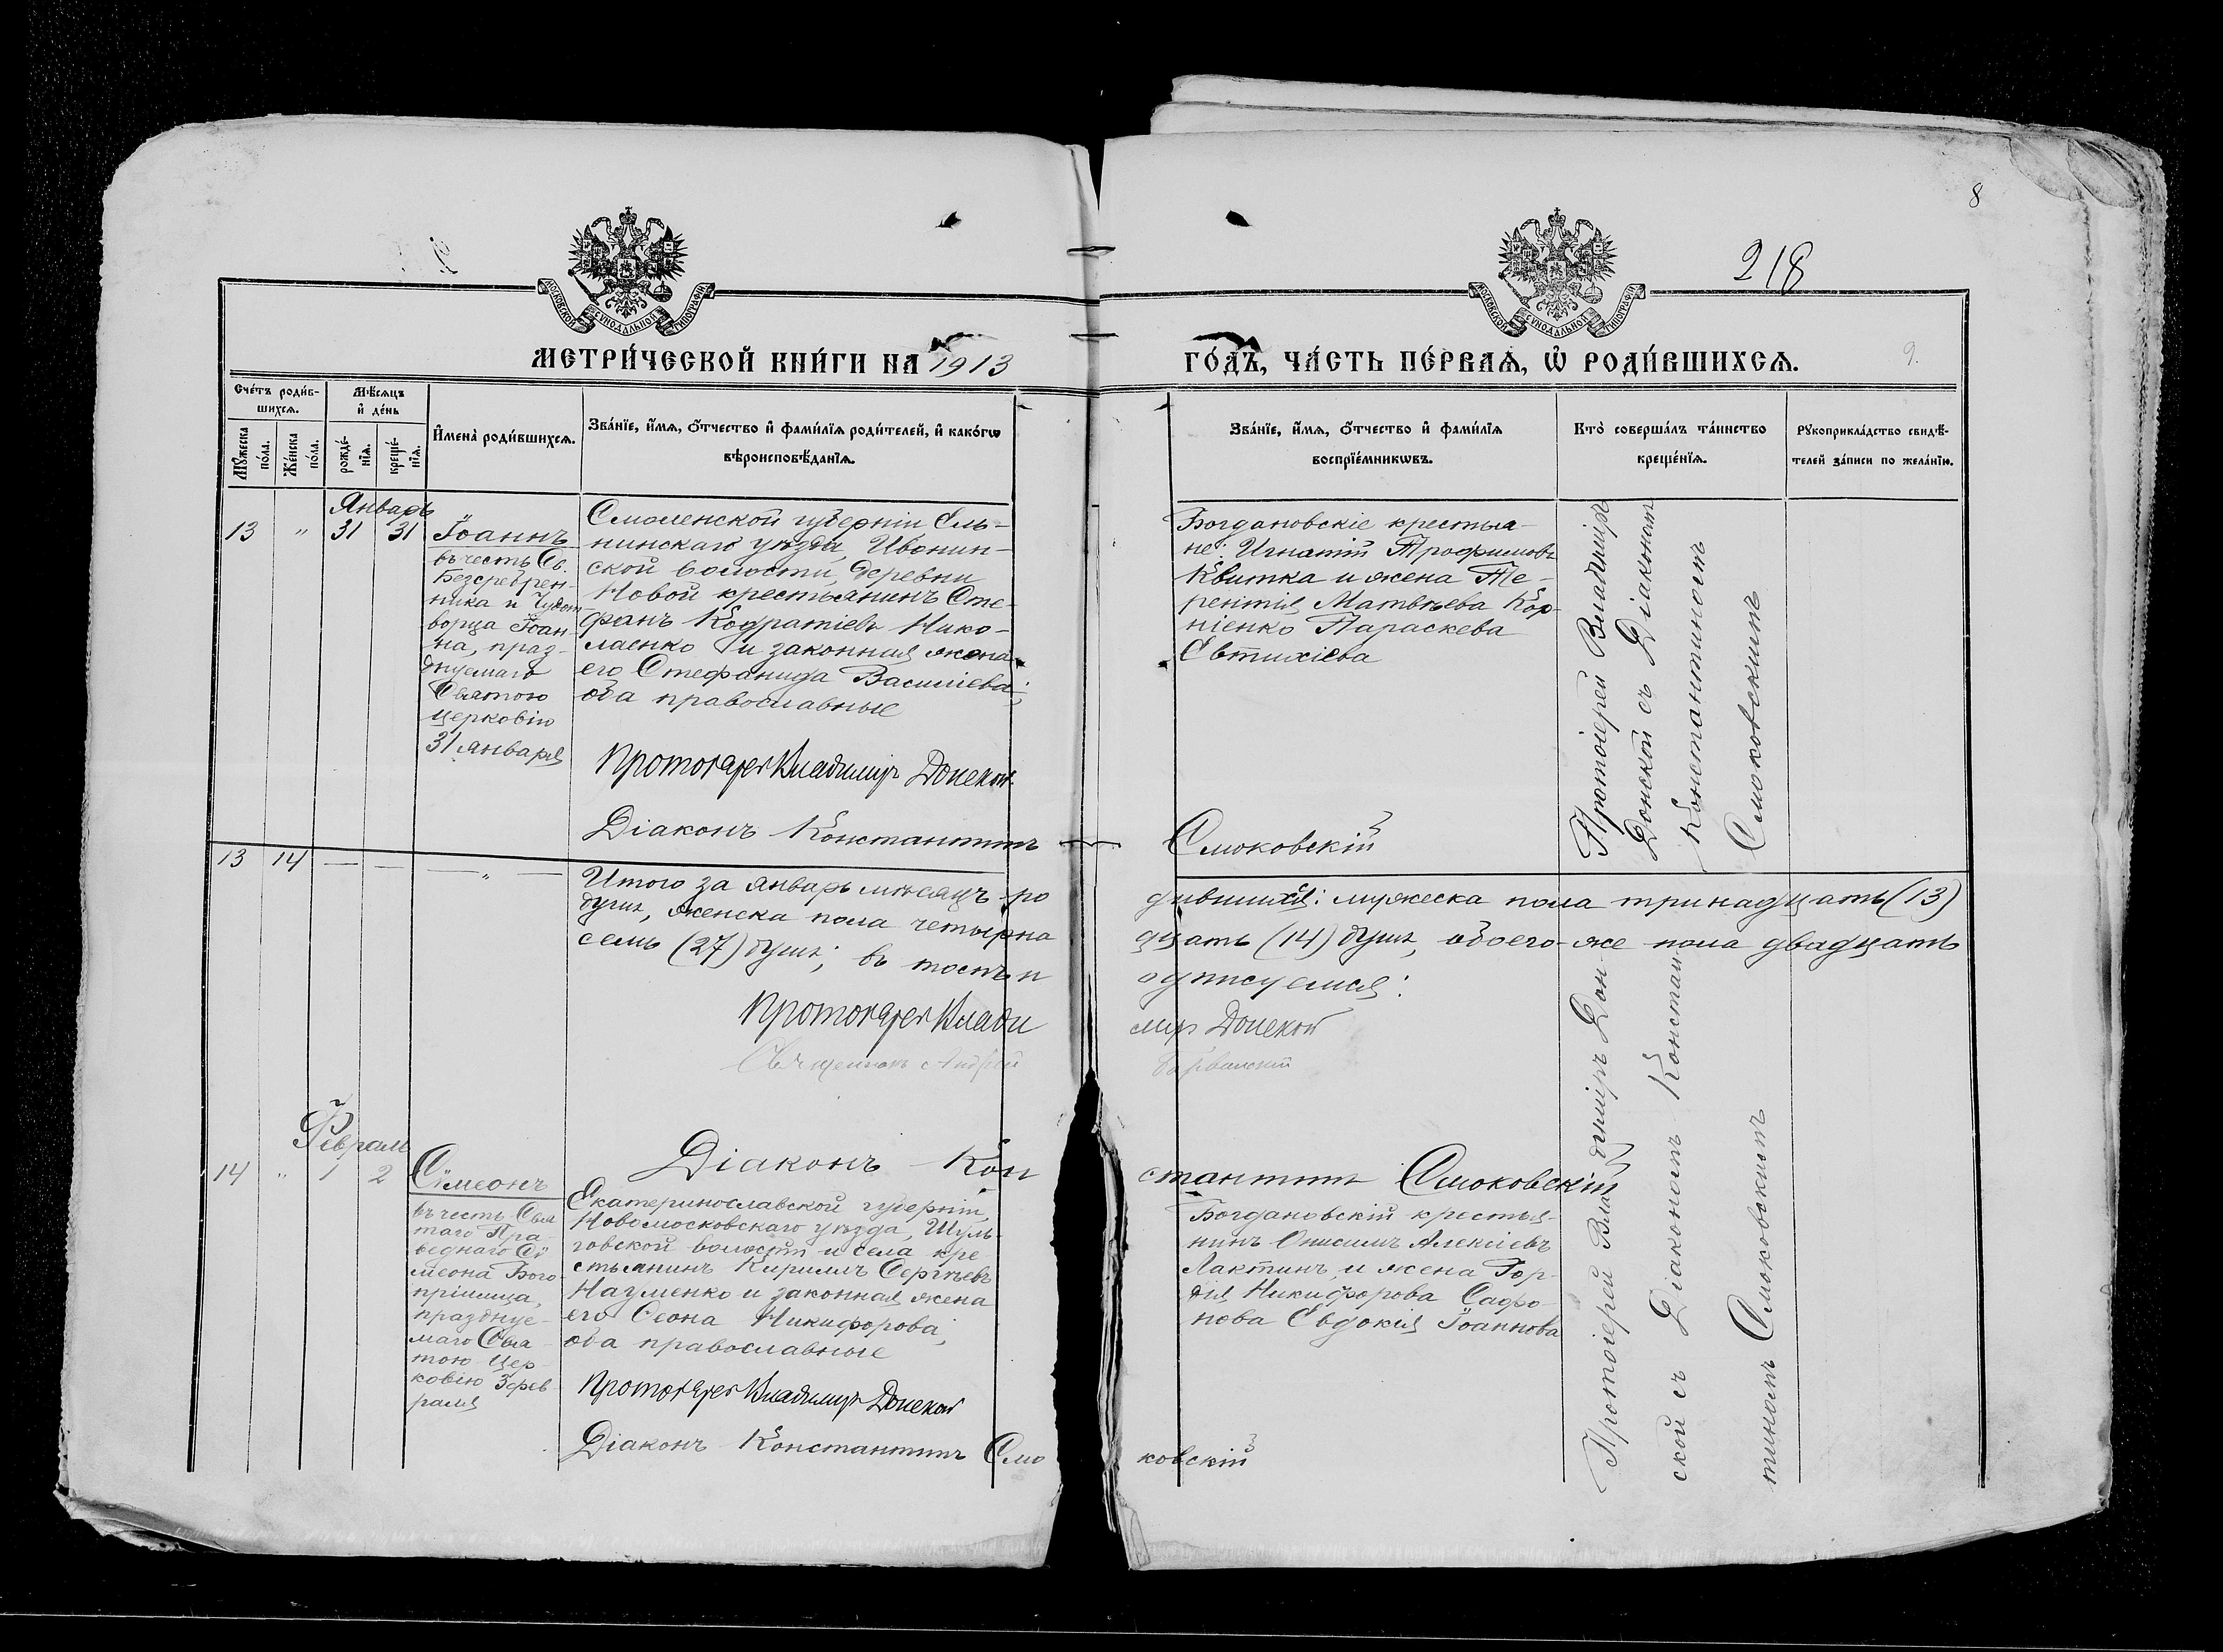 8
218
9.
МОСКОВСКОЙ СУНОДАЛЬНОЙ ТИПОГРАФІИ
МОСКОВСКОЙ СУНОДАЛЬНОЙ ТИПОГРАФІИ
МЕТРИ́ЧЕСКОЙ КНИ́ГИ НА 1913
ГО́ДЪ, ЧА́СТЬ ПЕ́РВАѦ, Ѡ҆ РОДИ́ВШИХСѦ.
Сче́тъ роди́в-
шихсѧ.
Мꙋ́жеска
по́ла.
Же́нска
по́ла.
Мѣ́сѧцъ
и҆ де́нь
рожде́-
нїѧ.
креще́-
нїѧ.
И҆мена̀ роди́вшихсѧ.
Зва́нїе, и҆́мѧ, ѻ҆́тчество и҆ фами́лїѧ роди́телей, и҆ како́гѡ
вѣроисповѣ́данїѧ.
Зва́нїе, и҆́мѧ, ѻ҆́тчество и҆ фами́лїѧ
воспрїе́мникѡвъ.
Кто̀ соверша́лъ та́инство
креще́нїѧ.
Рꙋкоприкла́дство свидѣ́-
телей за́писи по жела́нїю.
Январь
13 " 31 31
Іоаннъ
въ честь Св.
Безсребрен-
ника и Чудот-
ворца Іоан-
на, праз-
днуемаго
Святою
церковію
31 января
Смоленской губерніи Ель-
нинскаго уѣзда, Ивонин-
ской волости, деревни
Новой крестьянинъ Сте-
фанъ Кодратіевъ Нико-
лаенко и законная жена
его Стефанида Василіева;
оба православные
Протоіерей Владимиръ Донской
Діаконъ Константинъ
Смоковскій
Богдановскіе крестья-
не: Игнатій Трофимовъ
Квитка и жена Те-
рентія Матвѣева Кор-
ніенко Параскева
Евтихіева
Протоіерей Владиміръ
Донской съ Діакономъ
Константиномъ
Смоковскимъ
13 14 — — — " —
Итого за январь мѣсяцъ ро
дившихся: мужеска пола тринадцать (13)
душъ, женска пола четырна
дцать (14) душъ, обоего-же пола двадцать
семь (27) душъ; въ томъ п
одписуемся:
Протоіерей Влади
миръ Донской
Священникъ Андрей
Діаконъ Кон
стантинъ Смоковскій
Февраль
14 " 1 2
Сѵмеонъ
въ честь Свя
таго Пра-
веднаго Сѵ
меона Бого-
пріимца,
празднуе-
маго Свя-
тою Цер-
ковію 3 фев-
раля
Екатеринославской губерніи,
Новомосковскаго уѣзда, Шуль-
говской волости и села кре
стьянинъ Кириллъ Сергѣевъ
Науменко и законная жена
его Ѳеона Никифорова,
оба православные
Протоіерей Владимиръ Донской
Діаконъ Константинъ Смо
ковскій
Богдановскій крестья-
нинъ Онисимъ Алексіевъ
Лактинъ, и жена Гор-
дія Никифорова Сафо-
нова Евдокія Іоаннова
Протоіерей Владиміръ Дон-
ской съ Діакономъ Констан-
тиномъ Смоковскимъ